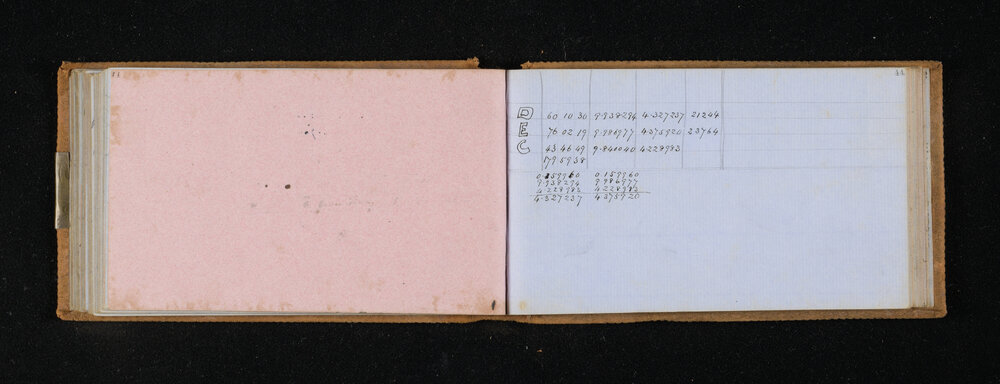 D 60 10 30 9.938294 4.327237 21244
E 76 02 19 9.986977 4.375920 23764
C 43 46 49 9.840040 4.228983
179 59 38
0.159960 0.159960
9.938294 9.986977
4.228983 4.228983
4.327237 4.375920